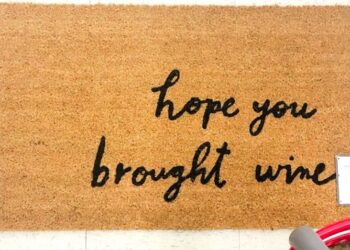 hope you
brought wine